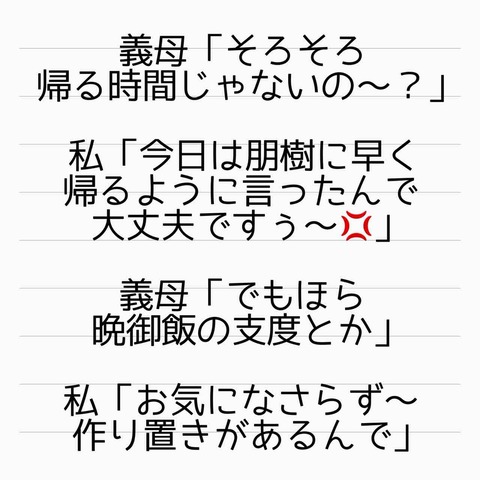 義母「そろそろ
帰る時間じゃないの〜？」
私「今日は朋樹に早く
帰るように言ったんで
大丈夫ですぅ〜💢」
義母「でもほら
晩御飯の支度とか」
私「お気になさらず〜
作り置きがあるんで」